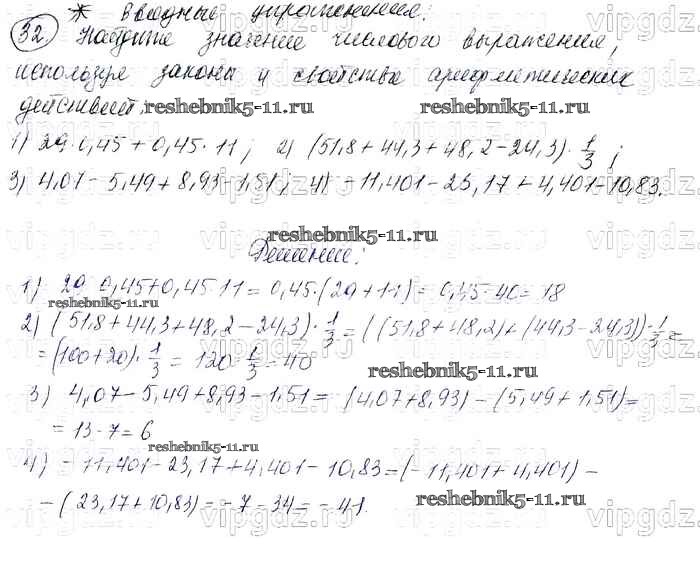 * Вводные упражнения:
32. Найдите значение числового выражения,
используя законы и свойства арифметических
действий: reshebnik5-11.ru reshebnik5-11.ru
1) 29·0,45 + 0,45·11; 2) (51,8 + 44,3 + 48,2 - 24,3)·1/3;
3) 4,07 - 5,49 + 8,93 - 1,51; 4) -11,401 - 23,17 + 4,401 - 10,83.
reshebnik5-11.ru
Решение:
1) 29·0,45+0,45·11 = 0,45·(29+11) = 0,45·40 = 18
reshebnik5-11.ru
2) (51,8+44,3+48,2-24,3)·1/3 = ((51,8+48,2)+(44,3-24,3))·1/3 =
= (100+20)·1/3 = 120·1/3 = 40
reshebnik5-11.ru
3) 4,07-5,49+8,93-1,51 = (4,07+8,93) - (5,49+1,51) =
= 13-7 = 6
reshebnik5-11.ru
4) -11,401-23,17+4,401-10,83 = (-11,401+4,401) -
- (23,17+10,83) = -7-34 = -41.
reshebnik5-11.ru